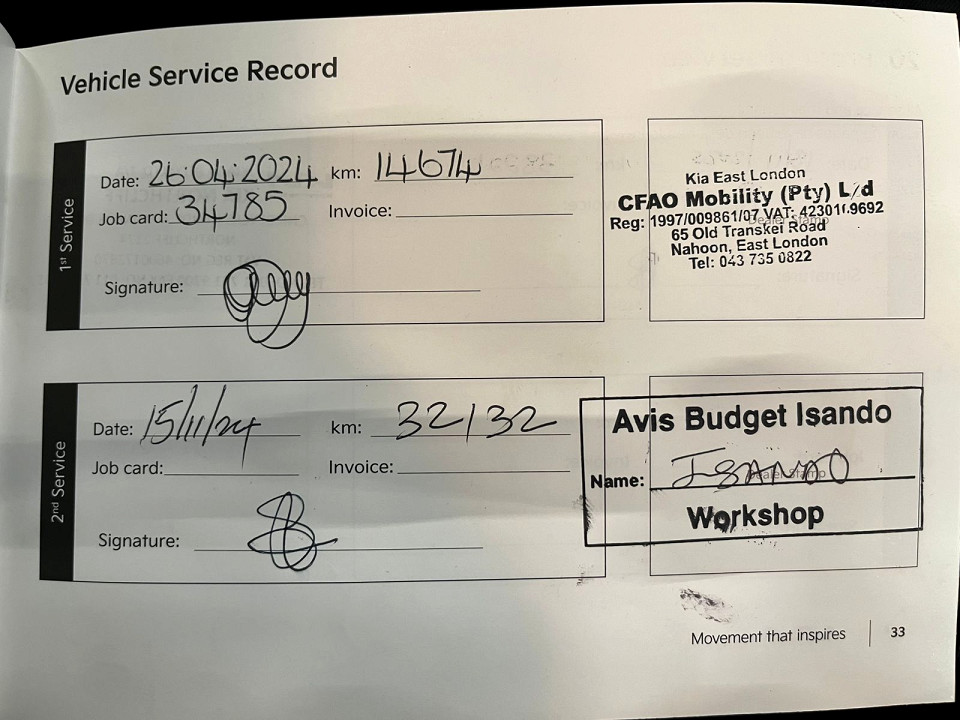 Vehicle Service Record
1st Service
Date: 26:04:2024 km: 14674
Job card: 34785 Invoice:
Signature:
Kia East London
CFAO Mobility (Pty) L/d
Reg: 1997/009861/07 VAT: 4230 9692
65 Old Transkei Road
Nahoon, East London
Tel: 043 735 0822
Dealer Stamp
2nd Service
Date: 15/11/24 km: 32132
Job card: Invoice:
Signature:
Avis Budget Isando
Name: ISANDO
Dealer Stamp
Workshop
Movement that inspires 33